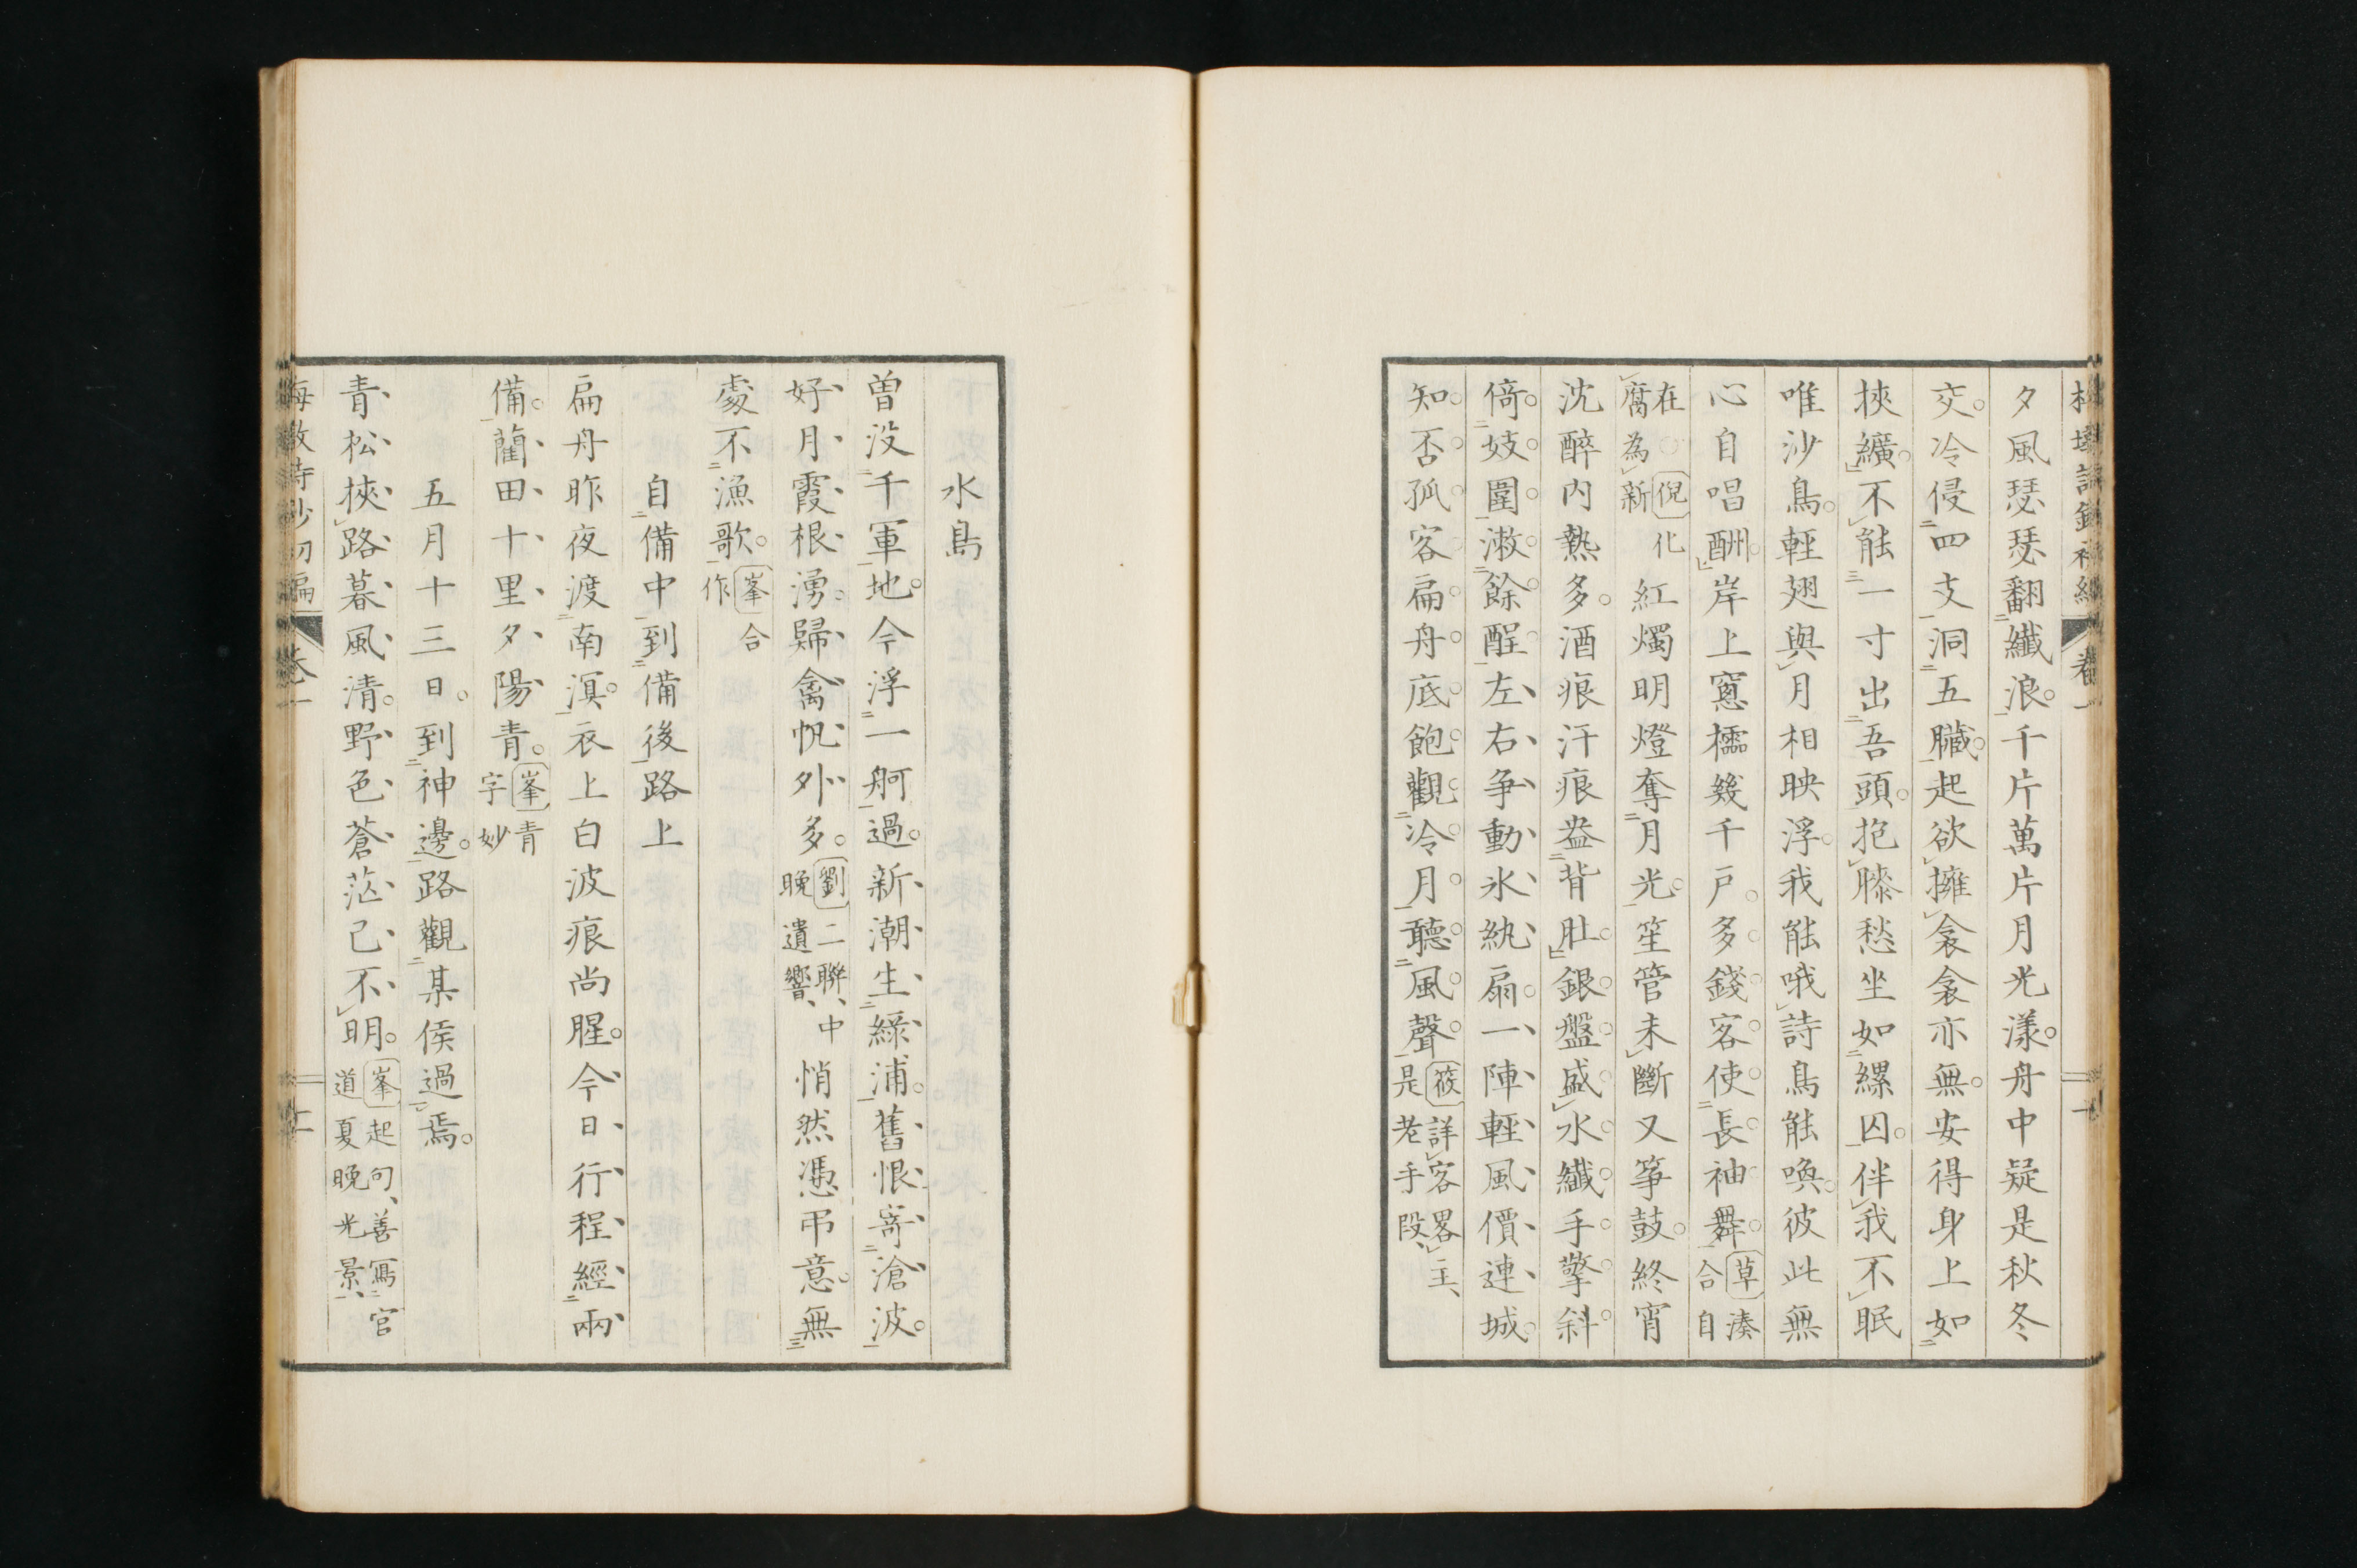 夕風瑟瑟翻纖浪。千片萬片月光漾。舟中疑是秋冬
交。冷侵四支洞五臟。起欲擁衾衾亦無。安得身上如
挾纊。不能一寸出吾頭。抱膝愁坐如縲囚。伴我不眠
唯沙鳥。輕翅與月相映浮。我能哦詩鳥能喚。彼此無
心自唱酬。岸上窻櫺幾千戶。多錢客使長袖舞。草湊合自
在腐為新倪化紅燭明燈奪月光。笙管未斷又箏鼓。終宵
沈醉內熱多。酒痕汗痕盎背肚。銀盤盛水纖手擎。斜
倚妓圍漱餘酲。左右爭動氷紈扇。一陣輕風價連城。
知否孤客扁舟底。飽觀冷月聽風聲。筱詳客畧主、是老手段、
水島
曾没千軍地。今浮一舸過。新潮生綠浦。舊恨寄滄波。
好月霞根湧。歸禽帆外多。劉二聯、中晚遺響、悄然憑弔意。無
處不漁歌。峯合作
自備中到備後路上
扁舟昨夜渡南溟。衣上白波痕尚腥。今日行程經兩
備。藺田十里夕陽青。峯青字妙
五月十三日。到神邊。路觀某侯過焉。
青松挾路暮風清。野色蒼茫已不明。峯起句、善寫官道夏晚光景、
卷一